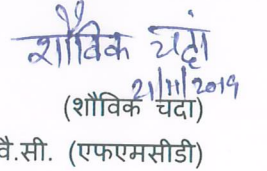 शौविक चंदा
21/11/2019
(शौविक चंदा)
वै.सी. (एफएमसीडी)